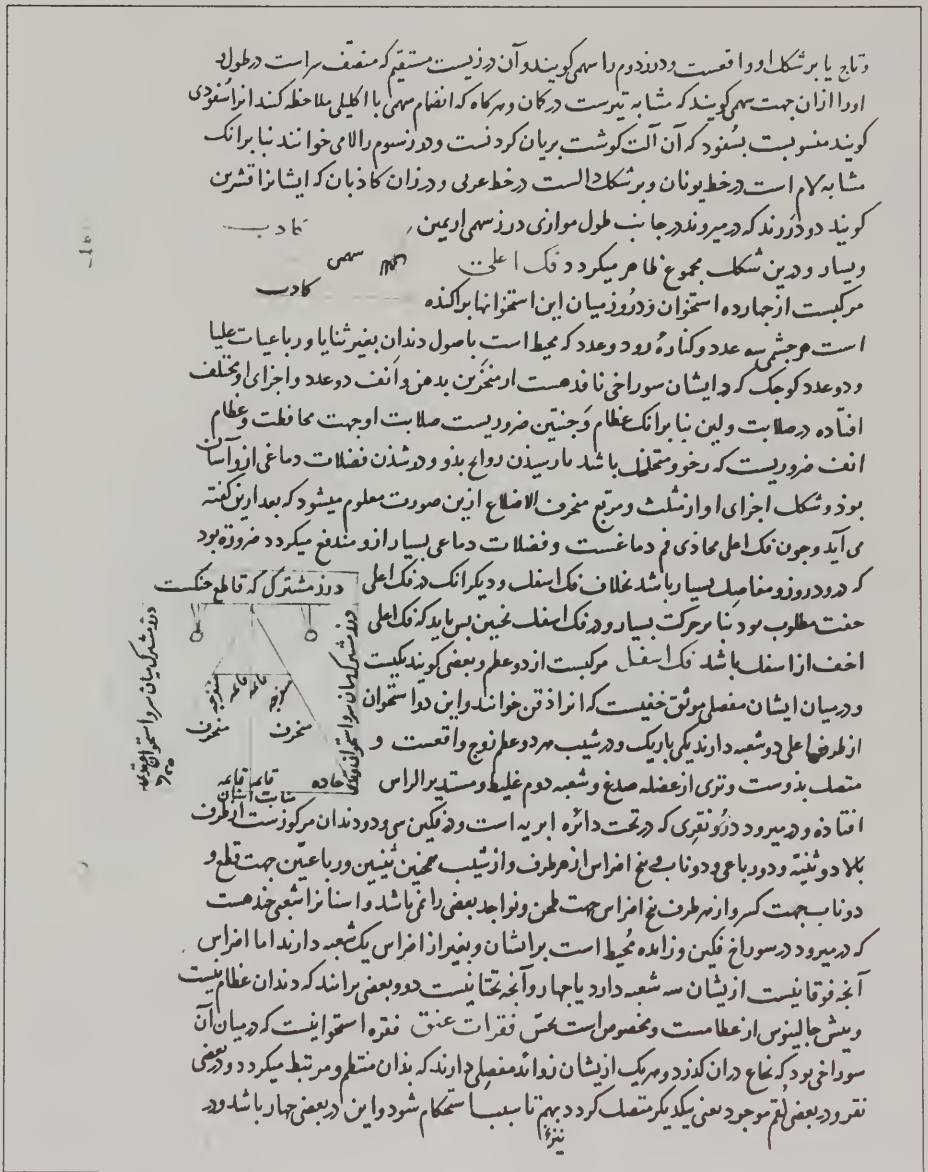 وتاج یا بر شکل او واقعست ودرز دوم را سهمی کویند وآن درزیست مستقیم که منصف سراست در طول و
اورا ازان جهت سهمی کویند که مشابه تیرست در کمان وهرکاه که انضمام سهمی با اکلیلی ملاحظه کنند انرا سفودی
کویند منسوبست بسفود که آن آلت کوشت بریان کردنست ودرز سوم را لامی خوانند بنا برانک
مشابه لام است در خط یونان وبر شکل دالست در خط عربی ودرزان کاذبان که ایشانرا قشرین
کویند دو درزند که در میروند در جانب طول موازی درز سهمی از یمین
کاذب
ویسار ودرین شکل مجموع ظاهر میکردد فک اعلی
سهمی
مرکبست از چهارده استخوان ودروز میان این استخوانها براکنده
کاذب
است هر چشمی سه عدد وکناره رو دو عدد که محیط است باصول دندان بغیر ثنایا ورباعیات علیا
ودو عدد کوچک که در ایشان سوراخی نافذ هست از منخرین بدهن وانف دو عدد واجزای او مختلف
افتاده در صلابت ولین بنا برانک عظام وجنتین ضروریست صلابت او جهت محافظت وعظام
انف ضروریست که رخو ومتخلخل باشد تا رسیدن روایح بذو ودر شدن فضلات دماغی ازو آسان
بوذ وشکل اجزای او از مثلث ومربع منحرف الاضلاع ازین صورت معلوم میشود که بعد ازین کفته
می آید وچون فک اعلی محاذی فم دماغست وفضلات دماغی بسیار ازو مندفع میکردد ضرورة بود
که درو دروز ومفاصل بسیار باشد بخلاف فک اسفل ودیکر انک در فک اعلی
خفت مطلوب بود بنا بر حرکت بسیار ودر فک اسفل نحنین بس باید که فک اعلی
اخف از اسفل باشد فک اسفل مرکبست از دو عظم وبعضی کویند یکیست
ودر میان ایشان مفصلی موثق خفیست که انرا ذقن خوانند واین دو استخوان
از طرف اعلی دو شعبه دارند یکی باریک ودر شیب هر دو عظم زوج واقعست و
متصل بذوست وتری از عضله صدغ وشعبه دوم غلیظ ومستدیر الراس
افتاده ودر میرود درو نقری که در تحت دائره ابریه است ودر فکین سی ودو دندان مرکوزست از طرف
بالا دو ثنیه ودو رباعی ودو ناب وبنج اضراس از هر طرف واز شیب همچنین ثنیتین ورباعیتین جهت قطع و
دو ناب جهت کسر واز هر طرف بنج اضراس جهت طحن ونواجد بعضی را نمی باشد واسنانرا شعبی چند هست
که در میرود در سوراخ فکین وزایده محیط است بر ایشان وبغیر از اضراس یک شعبه دارند اما اضراس
آنچه فوقانیست ازیشان سه شعبه دارد یا چهار وآنچه تحتانیست دو وبعضی برانند که دندان عظام نیست
وبیش جالینوس از عظامست ومخصوص است بحس فقرات عنق فقره استخوانیست که در میان آن
سوراخی بود که نخاع دران کذرد وهر یک ازیشان زوائد مفصلی دارند که بذان منتظم ومرتبط میکردد ودر بعضی
نقر ودر بعضی لقم موجود یعنی بیکدیکر متصل کردد بهم تا سبب استحکام شود واین در بعضی چهار باشد ودر
نیزه
درز مشترک که قاطع حنکست
درز مشترک میان سر واستخوان
درز مشترک میان سر واستخوان
منفرجه
قائمه
قائمه
منفرجه
منحرف
منحرف
حاده
قائمه
قائمه
منابت اسنان